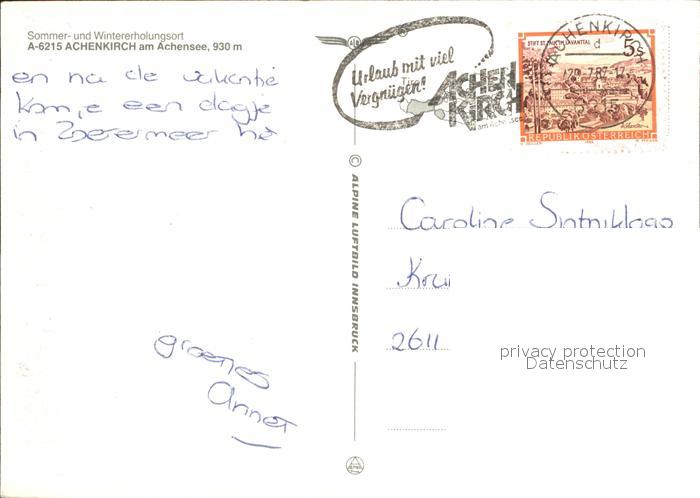 Sommer- und Wintererholungsort
A-6215 ACHENKIRCH am Achensee, 930 m
en na de vakantie
kom je een dagje
in Zoetermeer hè
groenes
Annet
© ALPINE LUFTBILD INNSBRUCK
Urlaub mit viel
Vergnügen!
ACHEN
KIRCH
am Achensee
ACHENKIRCH
STIFT ST. PAUL IM LAVANTTAL
5 S
REPUBLIK ÖSTERREICH
Caroline Sintniklaas
2611
privacy protection
Datenschutz